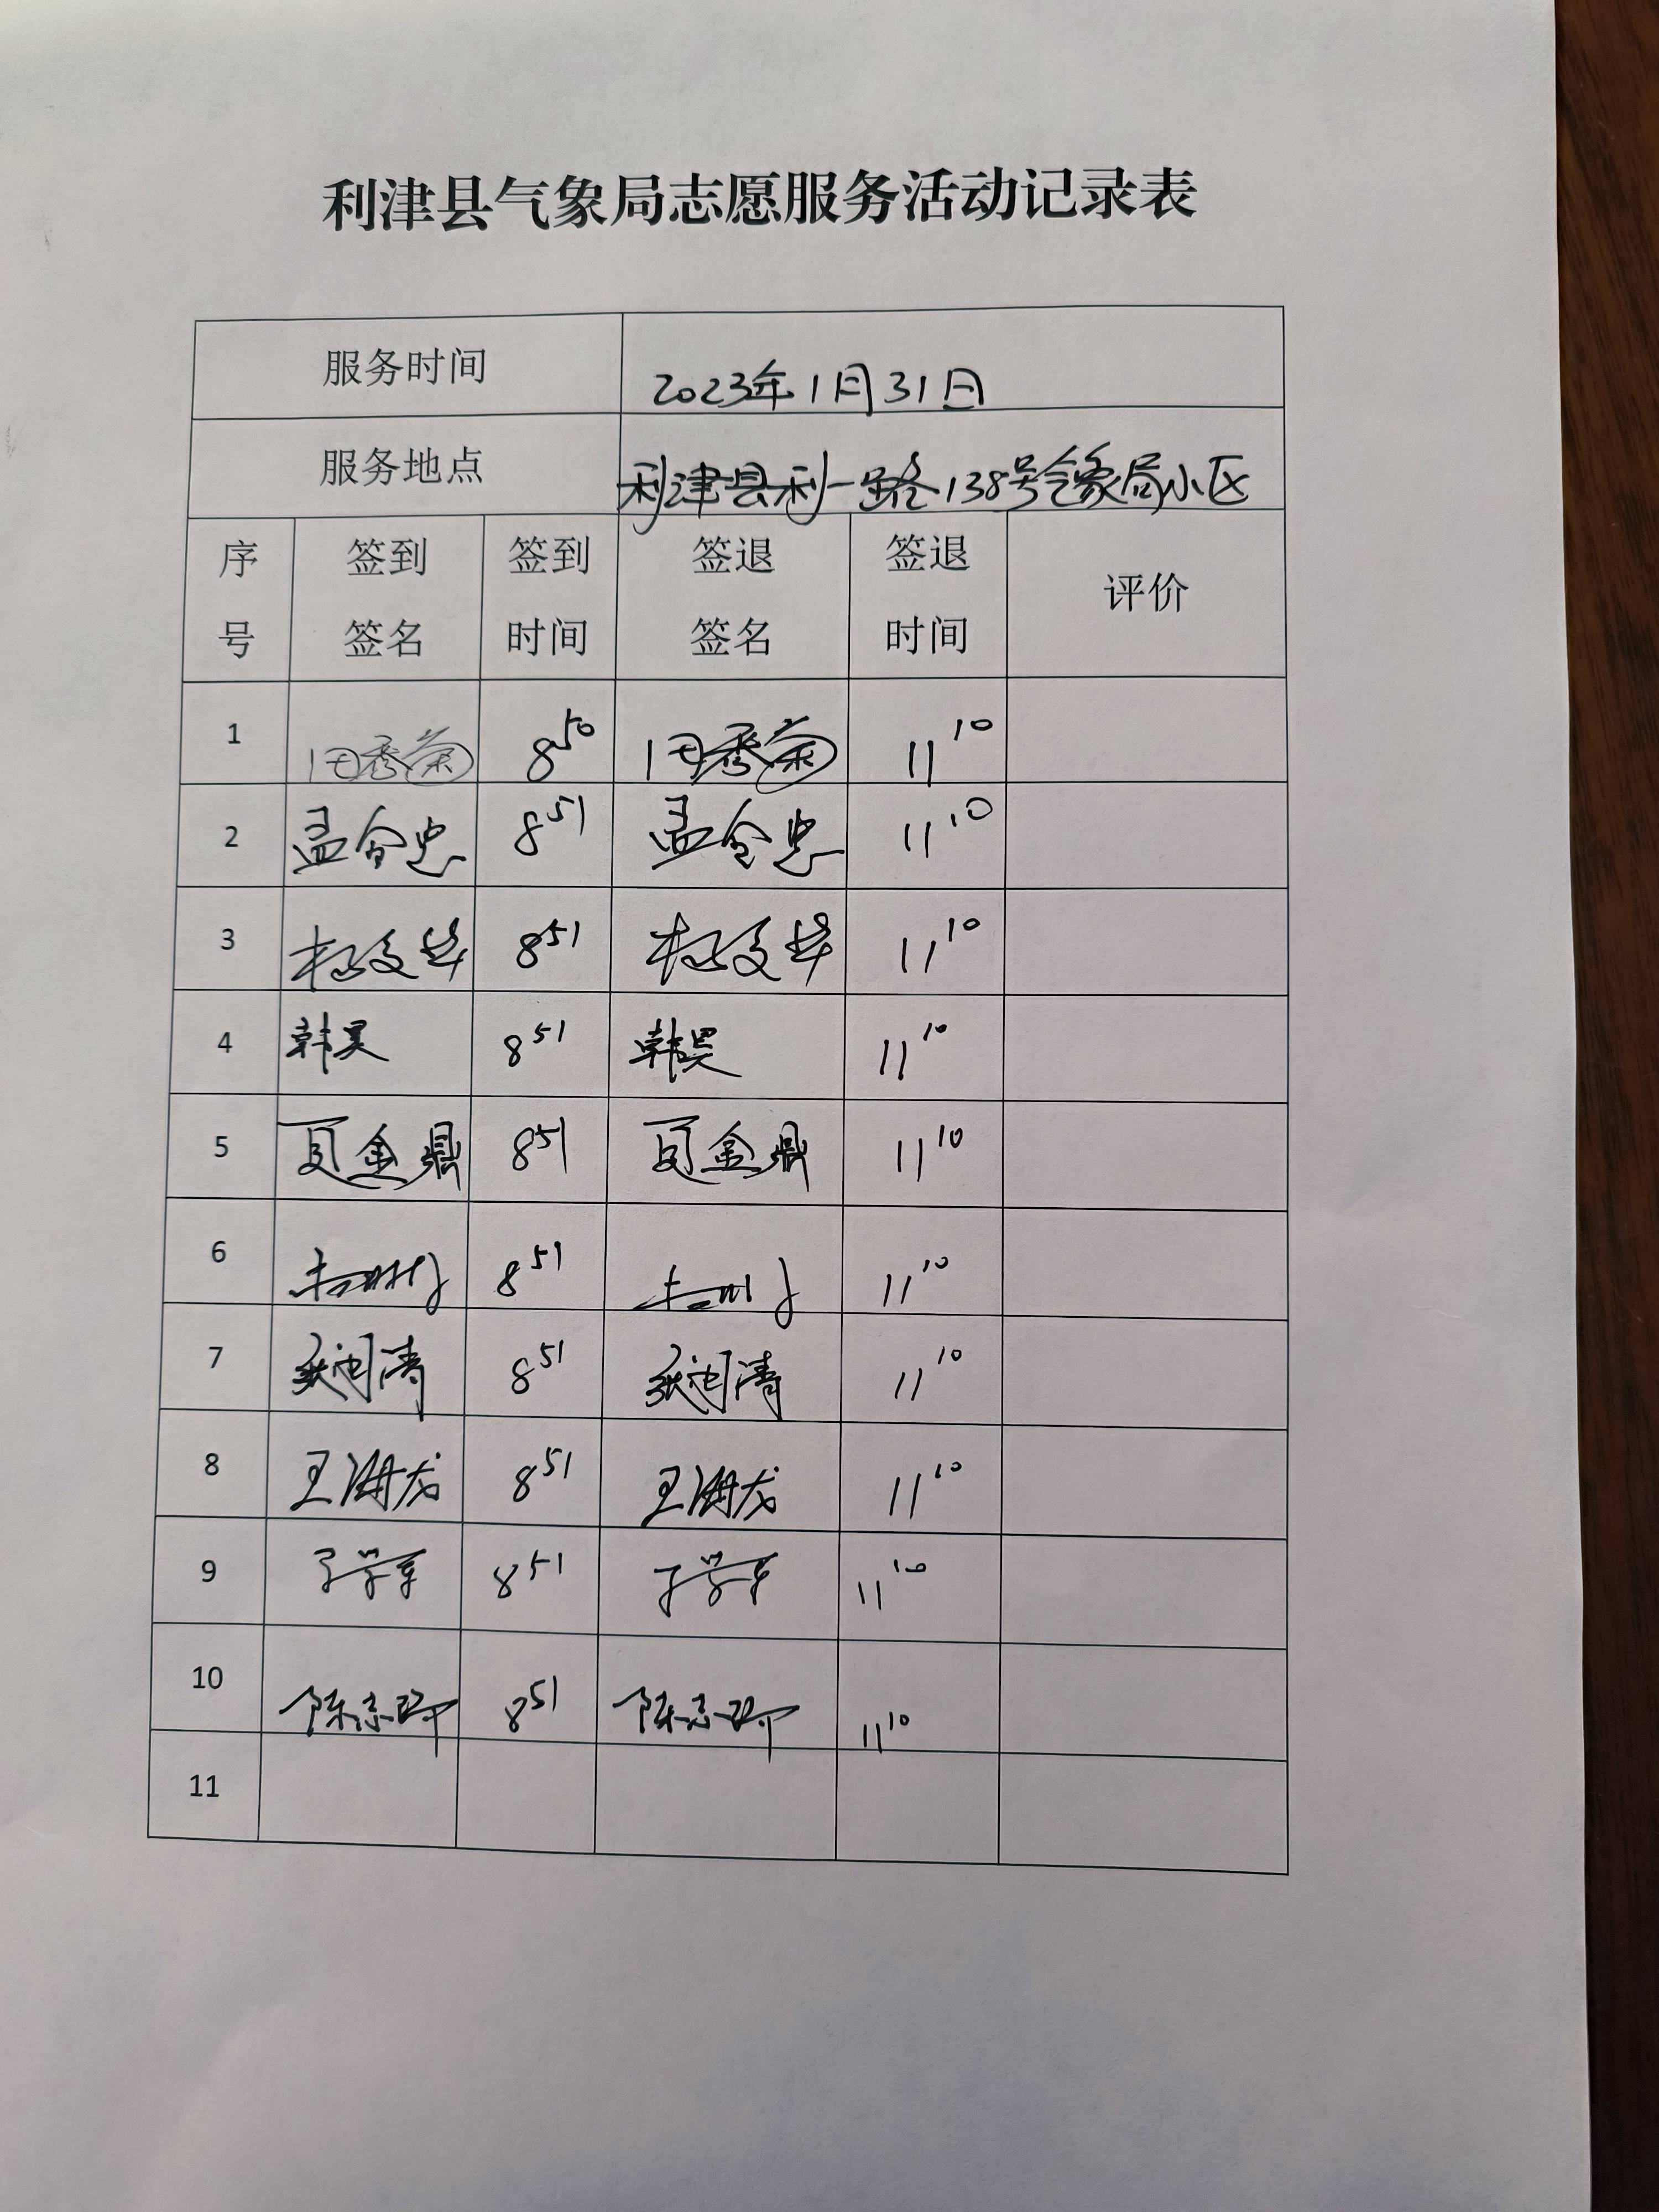 利津县气象局志愿服务活动记录表
服务时间 2023年1月31日
服务地点 利津县利一路138号气象局小区
序号 签到签名 签到时间 签退签名 签退时间 评价
1 田秀菊 8 50 田秀菊 11 10
2 孟令忠 8 51 孟令忠 11 10
3 杨文华 8 51 杨文华 11 10
4 韩昊 8 51 韩昊 11 10
5 夏金鼎 8 51 夏金鼎 11 10
6 8 51 11 10
7 8 51 11 10
8 王海龙 8 51 王海龙 11 10
9 于学军 8 51 于学军 11 10
10 8 51 11 10
11